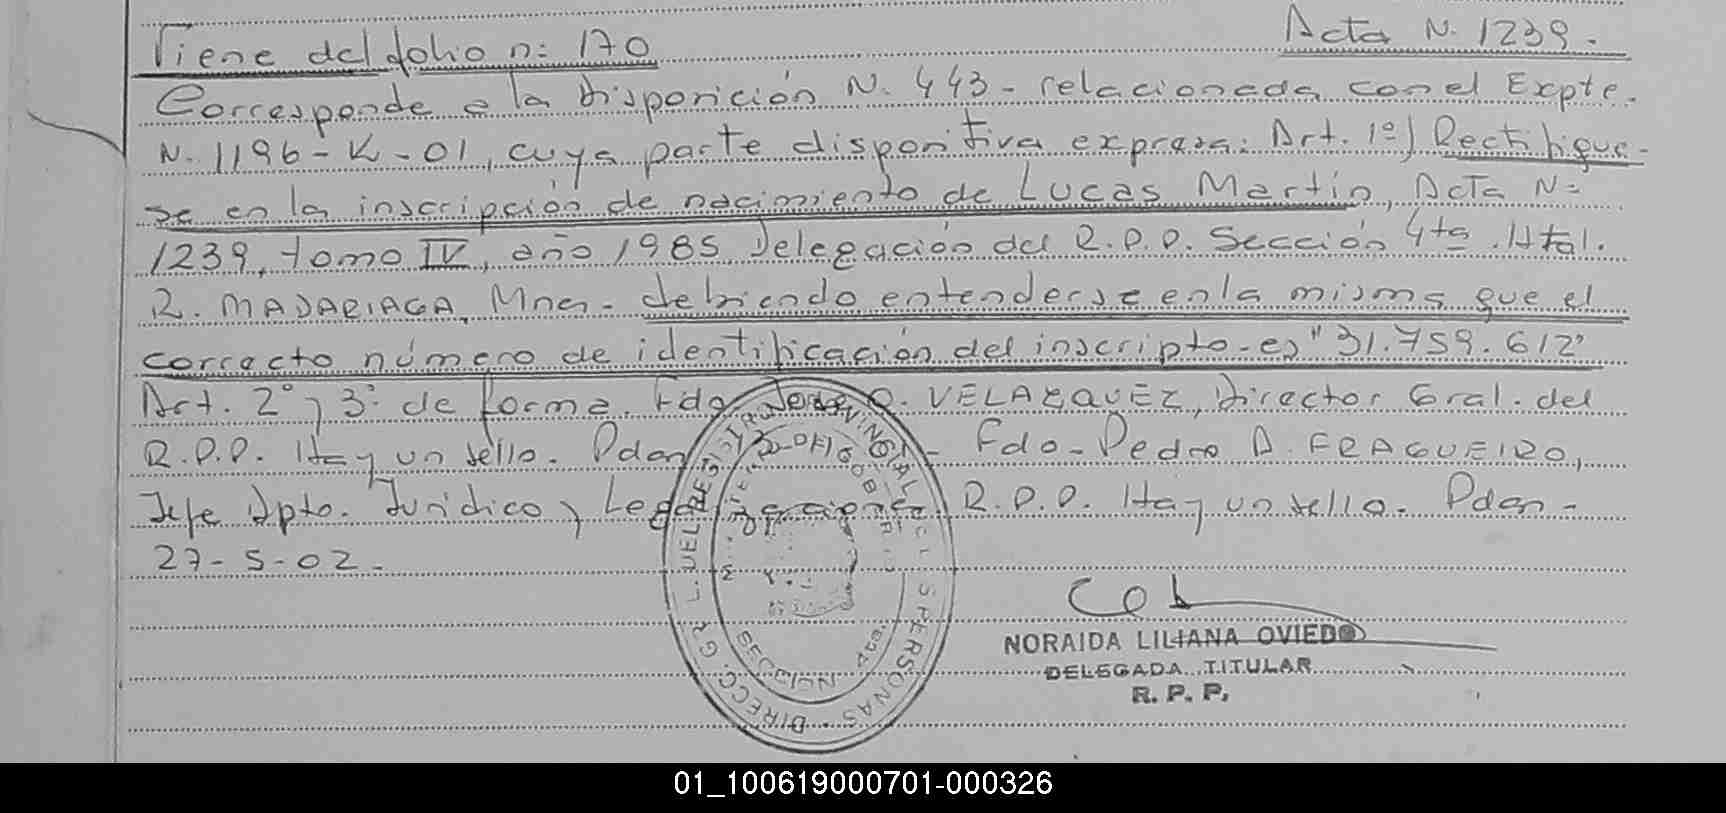 Viene del folio n: 170
Acta N. 1239.
Corresponde a la Disposición N. 443 - relacionada con el Expte.
N. 1196-K-01, cuya parte dispositiva expresa: Art. 1º) Rectifique-
se en la inscripción de nacimiento de Lucas Martín, Acta N=
1239, tomo IV, año 1985, Delegación del R.P.P. Sección 4ta. Htal.
R. MADARIAGA, Mnes- debiendo entenderse en la misma que el
correcto número de identificación del inscripto es "31.759.612"
Art. 2° y 3° de forma. Fdo. O. VELAZQUEZ, Director Gral. del
R.P.P. Hay un sello. Pdas - Fdo- Pedro A. FRAGUEIRO,
Jefe Dpto. Jurídico y Legalizaciones R.P.P. Hay un sello. Pdas-
27-5-02.
NORAIDA LILIANA OVIEDO
DELEGADA TITULAR
R. P. P.
01_100619000701-000326